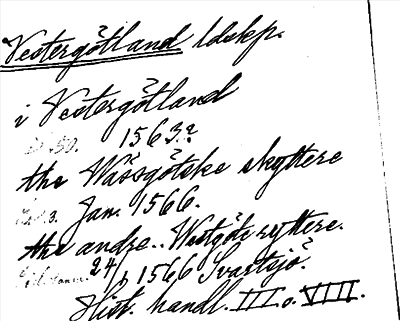 Vestergötland ldskp.
i Vestergötland
50. 1563.?
the Wässgötske skyttere
3. Jan. 1566.
the andre.. Westgöte ryttere.
24/1 1566 Svartsjö.
Hist. handl. III o. VIII.